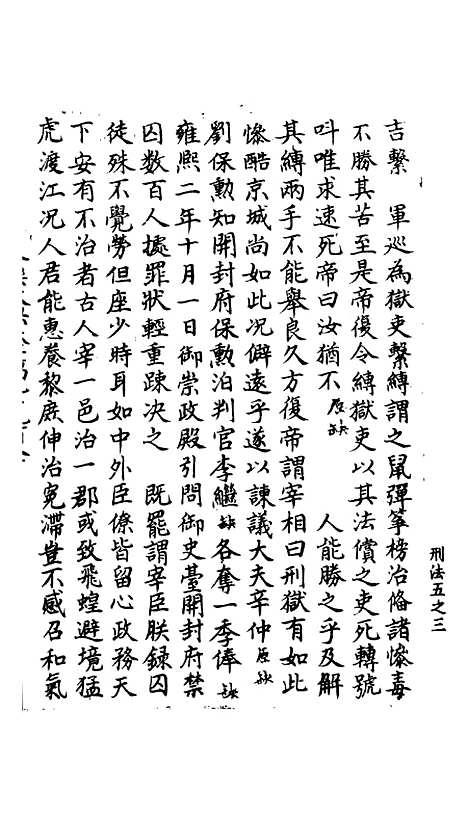 刑法五之三
吉繫　軍巡為獄吏繫縛謂之鼠彈箏榜治俻諸慘毒
不勝其苦至是帝復令縛獄吏以其法償之吏死轉號
呌唯求速死帝曰汝猶不原缺　人能勝之乎及解
其縛兩手不能舉良久方復帝謂宰相曰刑獄有如此
慘酷京城尚如此况僻遠乎遂以諫議大夫辛仲原缺
劉保勲知開封府保勲洎判官李繼缺各奪一季俸缺
雍熙二年十月一日御崇政殿引問御史臺開封府禁
囚数百人據罪狀輕重踈决之　既罷謂宰臣朕録囚
徒殊不覺勞但座少時耳如中外臣僚皆留心政務天
下安有不治者古人宰一邑治一郡或致飛蝗避境猛
虎渡江况人君能惠養黎庶伸治寃滯豈不感召和氣